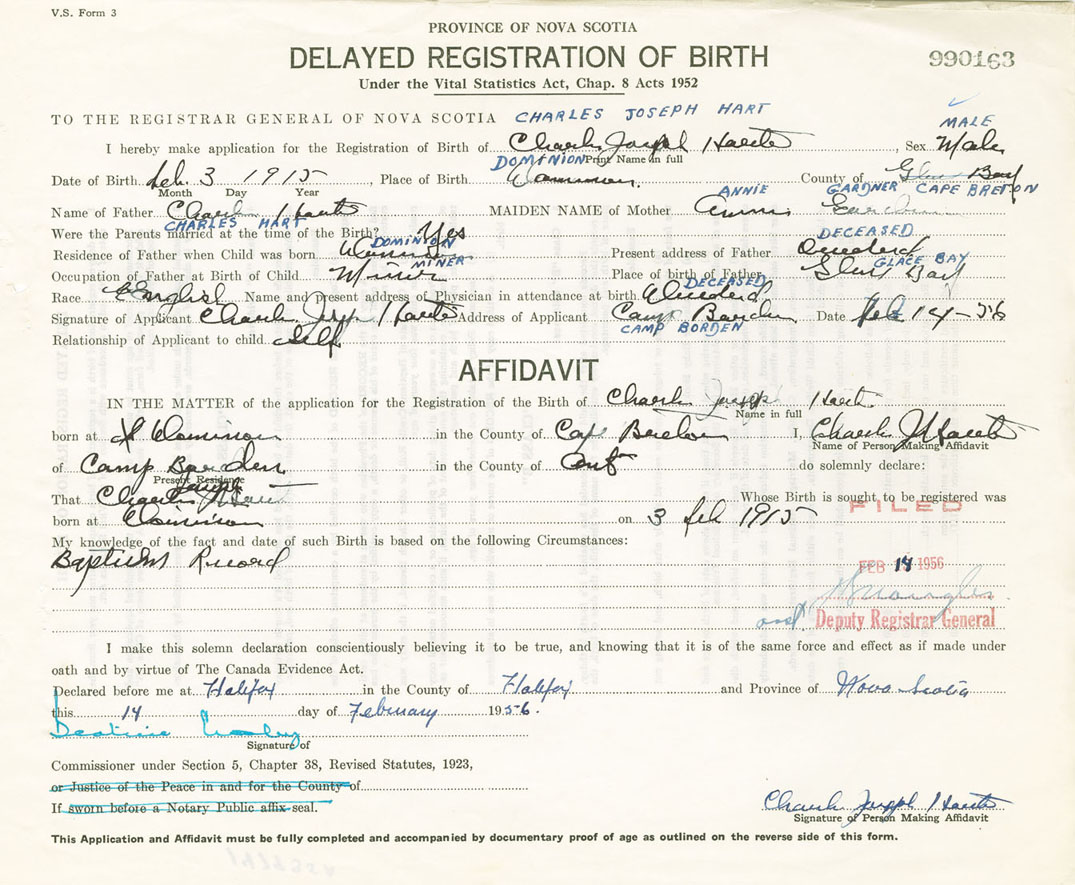 V.S. Form 3
PROVINCE OF NOVA SCOTIA
DELAYED REGISTRATION OF BIRTH
990163
Under the Vital Statistics Act, Chap. 8 Acts 1952
TO THE REGISTRAR GENERAL OF NOVA SCOTIA CHARLES JOSEPH HART MALE
I hereby make application for the Registration of Birth of Charles Joseph Hart, Sex Male
DOMINION Print Name in full
Date of Birth Feb. 3 1915, Place of Birth Dominion County of Glace Bay
Month Day Year ANNIE GARDNER CAPE BRETON
Name of Father Charles Hart MAIDEN NAME of Mother Annie
CHARLES HART DECEASED
Were the Parents married at the time of the Birth? Yes
DOMINION
Residence of Father when Child was born Dominion Present address of Father Deceased
MINER GLACE BAY
Occupation of Father at Birth of Child Miner Place of birth of Father Glace Bay
DECEASED
Race English Name and present address of Physician in attendance at birth Deceased
Signature of Applicant Charles Joseph Hart Address of Applicant Camp Borden Date Feb 14-56
CAMP BORDEN
Relationship of Applicant to child Self
AFFIDAVIT
IN THE MATTER of the application for the Registration of the Birth of Charles Joseph Hart
Name in full
born at Dominion in the County of Cape Breton I, Charles J Hart
Name of Person Making Affidavit
of Camp Borden in the County of Ont do solemnly declare:
Present Residence
Joseph
That Charles Hart Whose Birth is sought to be registered was
born at Dominion on 3 Feb 1915
FILED
My knowledge of the fact and date of such Birth is based on the following Circumstances:
Baptism Record
FEB 14 1956
Deputy Registrar General
I make this solemn declaration conscientiously believing it to be true, and knowing that it is of the same force and effect as if made under
oath and by virtue of The Canada Evidence Act.
Declared before me at Halifax in the County of Halifax and Province of Nova Scotia
this 14 day of February 1956.
Signature of
Commissioner under Section 5, Chapter 38, Revised Statutes, 1923,
or Justice of the Peace in and for the County of
If sworn before a Notary Public affix seal.
Charles Joseph Hart
Signature of Person Making Affidavit
This Application and Affidavit must be fully completed and accompanied by documentary proof of age as outlined on the reverse side of this form.